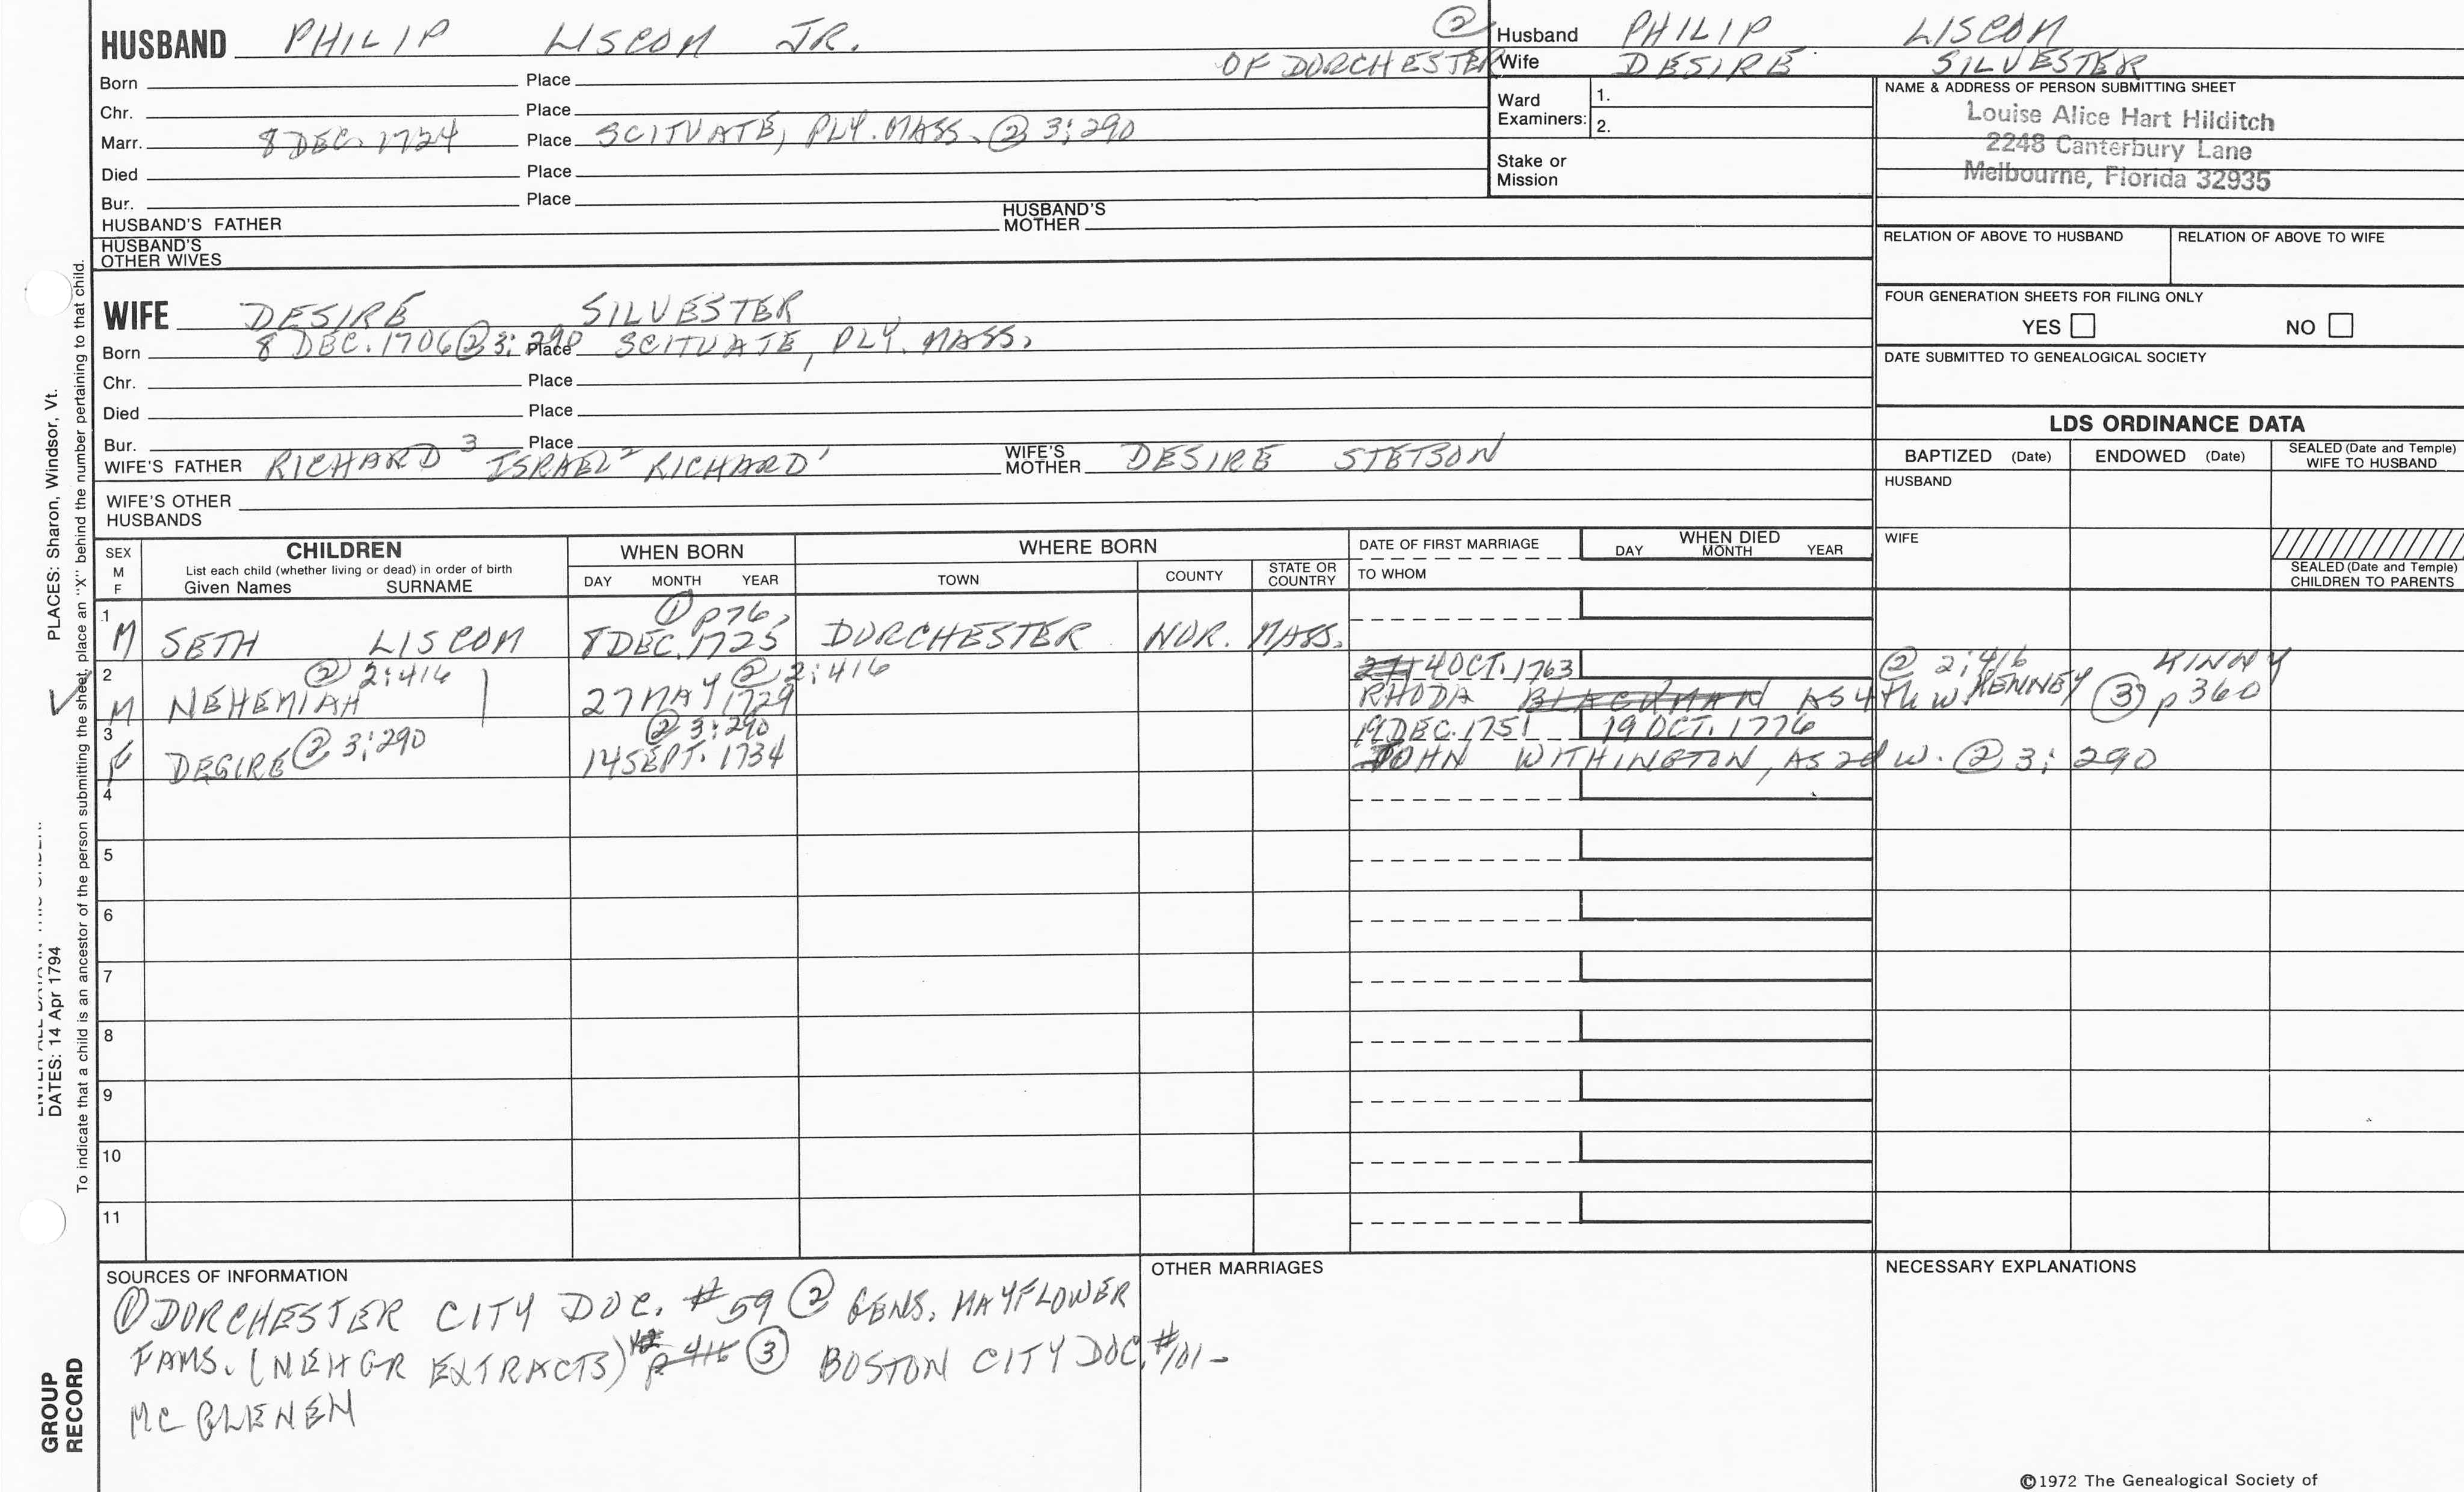 HUSBAND PHILIP LISCOM JR. ②
OF DORCHESTER
Born Place
Chr. Place
Marr. 8 DEC. 1724 Place SCITUATE, PLY. MASS. ② 3:290
Died Place
Bur. Place
HUSBAND'S FATHER HUSBAND'S MOTHER
HUSBAND'S OTHER WIVES
Husband PHILIP LISCOM
Wife DESIRE SILVESTER
Ward Examiners: 1.
2.
Stake or Mission
NAME & ADDRESS OF PERSON SUBMITTING SHEET
Louise Alice Hart Hilditch
2248 Canterbury Lane
Melbourne, Florida 32935
RELATION OF ABOVE TO HUSBAND RELATION OF ABOVE TO WIFE
FOUR GENERATION SHEETS FOR FILING ONLY
YES NO
DATE SUBMITTED TO GENEALOGICAL SOCIETY
WIFE DESIRE SILVESTER
Born 8 DEC. 1706 ② 3:290 Place SCITUATE, PLY. MASS.
Chr. Place
Died Place
Bur. Place
WIFE'S FATHER RICHARD³ ISRAEL² RICHARD¹ WIFE'S MOTHER DESIRE STETSON
WIFE'S OTHER HUSBANDS
LDS ORDINANCE DATA
BAPTIZED (Date) ENDOWED (Date) SEALED (Date and Temple) WIFE TO HUSBAND
HUSBAND
WIFE
SEALED (Date and Temple) CHILDREN TO PARENTS
SEX M F
CHILDREN
List each child (whether living or dead) in order of birth
Given Names SURNAME
WHEN BORN
DAY MONTH YEAR
WHERE BORN
TOWN COUNTY STATE OR COUNTRY
DATE OF FIRST MARRIAGE
TO WHOM
WHEN DIED
DAY MONTH YEAR
1 ① p76,
M SETH LISCOM 8 DEC. 1725 DORCHESTER NOR. MASS.
2 ② 2:416 ② 2:416 4 OCT. 1763 ② 2:416 KINNY
M NEHEMIAH 27 MAY 1729 RHODA BLACKMAN AS 4th w. KENNEY ③ p 360
3 ② 3:290 19 DEC. 1751 19 OCT. 1776
F DESIRE ② 3:290 14 SEPT. 1734 JOHN WITHINGTON, AS 2d w. ② 3:290
4
5
6
7
8
9
10
11
SOURCES OF INFORMATION
① DORCHESTER CITY DOC. #59 ② GENS. MAYFLOWER
FAMS. (NEHGR EXTRACTS) p 416 ③ BOSTON CITY DOC. #101-
MC GLENEN
OTHER MARRIAGES
NECESSARY EXPLANATIONS
©1972 The Genealogical Society of
PLACES: Sharon, Windsor, Vt.
DATES: 14 Apr 1794
To indicate that a child is an ancestor of the person submitting the sheet, place an "X" behind the number pertaining to that child.
GROUP
RECORD